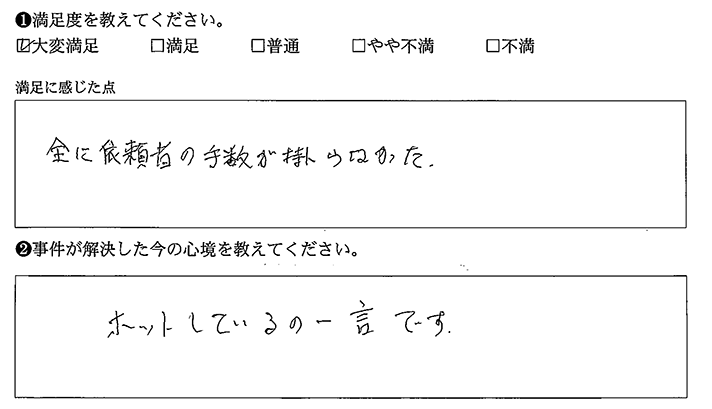 ❶満足度を教えてください。
☑大変満足 □満足 □普通 □やや不満 □不満
満足に感じた点
全に依頼者の手数が掛らなかった.
❷事件が解決した今の心境を教えてください。
ホットしているの一言です.